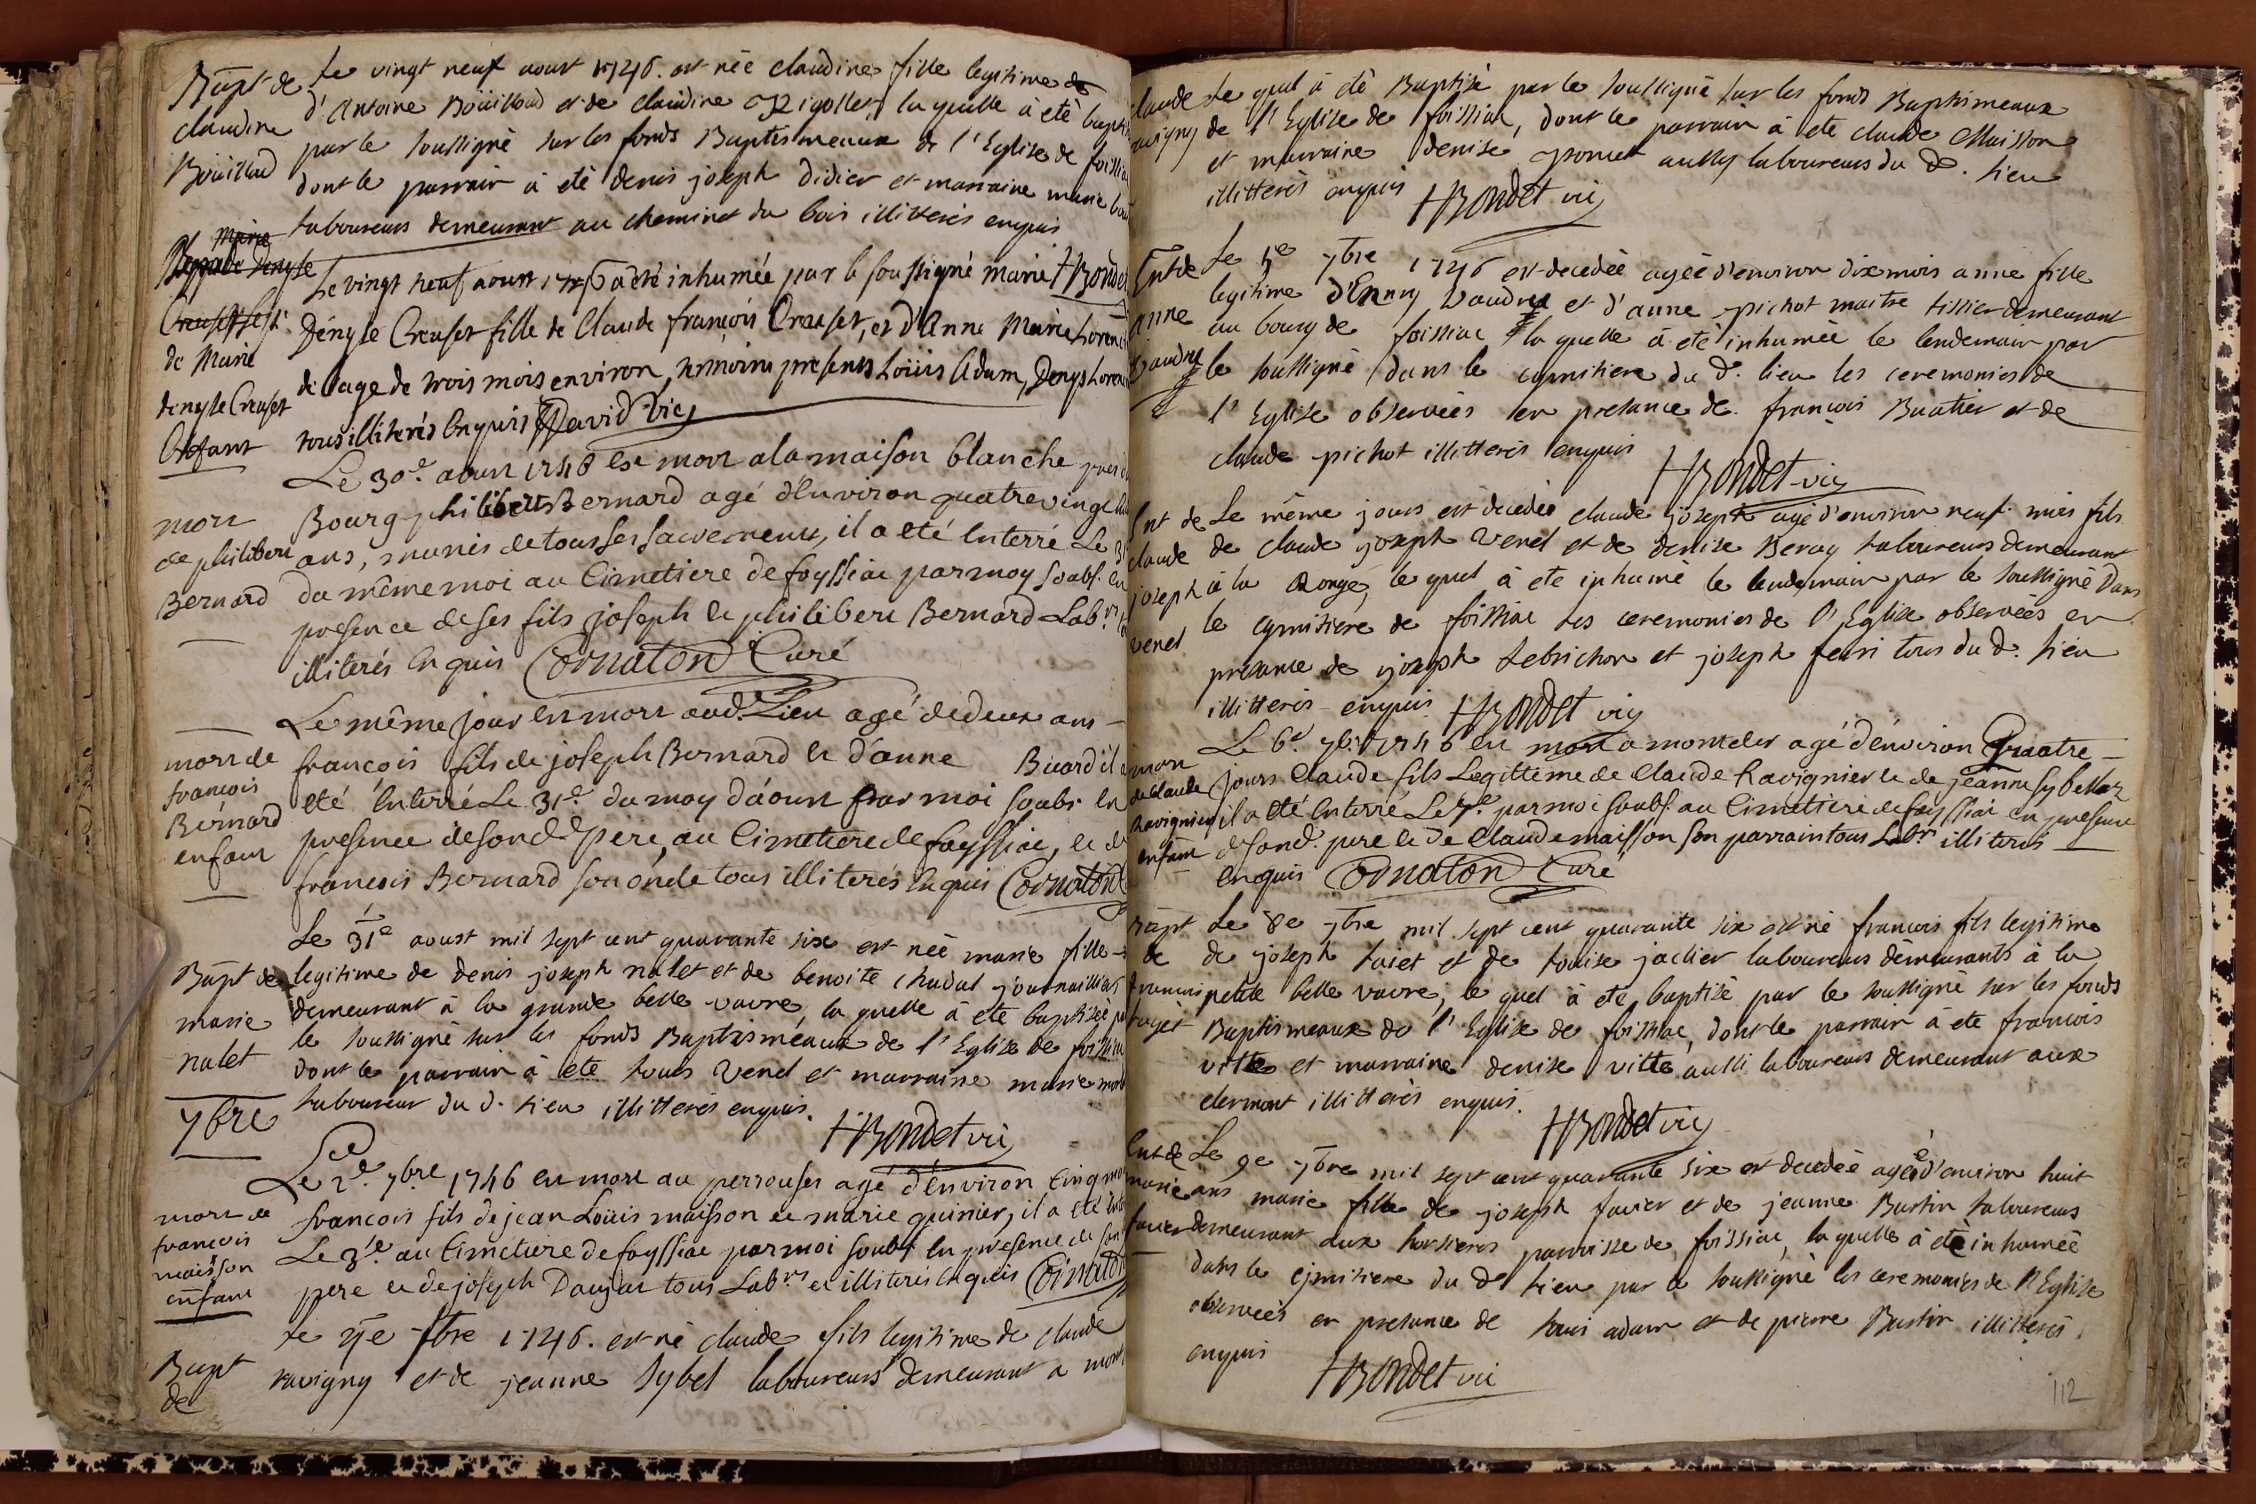 Bapt de
claudine
Boüilloud
Le vingt neuf aout 1746. est née claudine fille legitime de
d'Antoine Boüilloud et de claudine Rigollet, la quelle à eté bapt
par le soussigné sur les fonds Baptismeaux de l'Eglise de foissia
dont le parrain à eté denis joseph didier et marraine marie
laboureurs demeurant au cheminet du bois illitterés enquis
HBondet
Marie
denyse
Creuset
de Marie
denyse Creuset
Enfant
Le vingt neuf aoust 1746 a été inhumée par le soussigné marie
Dényse Creuset fille de Claude françois Creuset, et d'Anne Marie Loren
de l'age de trois mois environ, temoins presents Loüis Adam, Denys Loren
tous illiterés Enquis David Vic
mort
de philibert
Bernard
Le 30e. aoust 1746 est mort a la maison blanche près
Bourg philibert Bernard agé d'Environ quatre vingt
ans, munis de tous ses sacrements, il a eté Enterré Le 31
du même moi au Cimetiere de foyssiac par moy soubs. En
presence de ses fils joseph et philibert Bernard Labrs.
illiterés Enquis Cornaton Curé
mort de
francois
Bérnard
enfant
Le même jour est mort aud. Lieu agé de deux ans
françois fils de joseph Bernard et d'anne Buard il
eté Enterré Le 31e. du moy d'aoust par moi soubs. En
presence de sond. Pere, au Cimetiere de foyssiac, et de
francois Bernard son oncle tous illiterés Enquis Cornaton
Bapt de
marie
nalet
Le 31e aoust mil sept cent quarante six est née marie fille
legitime de denis joseph nalet et de benoite chadal journailliers
demeurant à la grande belle vavre, la quelle à eté baptisée
le soussigné sur les fonds Baptismeaux de l'Eglise de foissia
dont le parrain à eté louis Venel et marraine marie
laboureur du d. lieu illitterés enquis.
HBondet vic
7bre
mort de
francois
maisson
enfant
Le 2e. 7bre 1746 est mort au perrouses agé d'Environ Cinq
francois fils de jean Loüis maisson et marie guinier, il a eté
Le 3e. au Cimetiere de foyssiac par moi soubs. En presence de son
pere et de joseph Daujat tous Labrs. et illiterés Enquis Cornaton
Bapt
de
Le 4e 7bre 1746. est né claude fils legitime de claude
ravigny et de jeanne Sybel laboureurs demeurant a mont
claude
ravigny
Le quel à eté Baptisé par le soussigné sur les fonds Baptismeaux
de l'Eglise de foissiac, dont le parrain à eté claude Maisson
et marraine denise gromet aussy laboureurs du d. lieu
illitterés enquis HBondet vic
Ent de
anne
Vaudry
Le 5e 7bre 1746 est decedée agée d'environ dix mois anne fille
legitime d'Enny Vaudry et d'anne pichot maitre tissier demeurant
au bourg de foissiac la quelle à eté inhumée le lendemain par
le soussigné dans le cymitiere du d. lieu les ceremonies de
l'Eglise observées en presance de françois Buatier et de
claude pichot illitterés enquis HBondet vic
Ent de
claude
joseph
Venel
Le même jours est decedée claude joseph agé d'environ neuf mois fils
de claude joseph Venel et de denise Beray laboureurs demeurant
à la ronge, le quel à eté inhumé le lendemain par le soussigné dans
le cymitiere de foissiac les ceremonies de l'Eglise observées en
presance de joseph Lebrichon et joseph feuri tous du d. lieu
illitterés enquis HBondet vic
mort
de claude
ravignier
enfant
Le 6e. 7bre 1746 est mort a montdes agé d'environ Quatre
jours Claude fils Legittime de Claude Ravignier et de jeanne Sybellaz
il a eté Enterré Le 7e. par moi soubs. au Cimetiere de foyssiac En presence
de sond. pere et de Claude maisson son parrain tous Labrs. illiterés
Enquis Cornaton Curé
Bapt
de
francois
tayet
Le 8e 7bre mil sept cent quarante six est né francois fils legitime
de joseph taiet et de louise jaclier laboureurs demeurants à la
petite belle vavre, le quel à eté baptisé par le soussigné sur les fonds
Baptismeaux de l'Eglise de foissiac, dont le parrain à eté francois
vitte et marraine denise vitte aussi laboureurs demeurant aux
clermont illitterés enquis. HBondet vic
Ent de
marie
favier
Le 9e 7bre mil sept cent quarante six est decedée agée d'environ huit
ans marie fille de joseph favier et de jeanne Burtin laboureurs
demeurant aux parroisse de foissiac, la quelle à eté inhumée
dans le cymitiere du d. lieu par le soussigné les ceremonies de l'Eglise
observées en presance de louis adam et de pierre Burtin illitterés
enquis HBondet vic
112